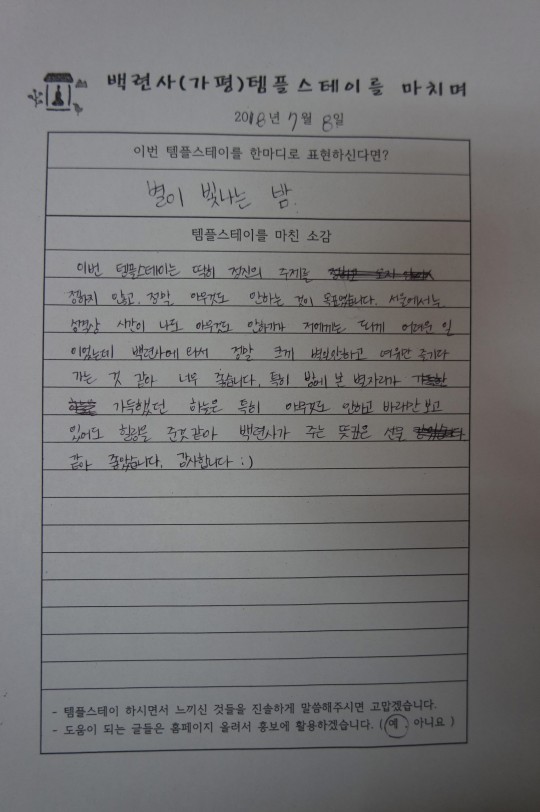 백련사(가평)템플스테이를 마치며
2018년 7월 8일
이번 템플스테이를 한마디로 표현하신다면?
별이 빛나는 밤.
템플스테이를 마친 소감
이번 템플스테이는 딱히 정신의 주제를
정하지 않고, 정말 아무것도 안하는 것이 목표였습니다. 서울에서는
성격상 시간이 나도 아무것도 안하기가 저에게는 되게 어려운 일
이었는데 백련사에 와서 정말 크게 안하고 여유만 즐기다
가는 것 같아 너무 좋습니다. 특히 밤에 본 별자리가
가득했던 하늘은 특히 아무것도 안하고 바라만 보고
있어도 힐링을 준것 같아 백련사가 주는 뜻깊은 선물
같아 좋았습니다. 감사합니다 :)
- 템플스테이 하시면서 느끼신 것들을 진솔하게 말씀해주시면 고맙겠습니다.
- 도움이 되는 글들은 홈페이지 올려서 홍보에 활용하겠습니다. ( 예 , 아니요 )